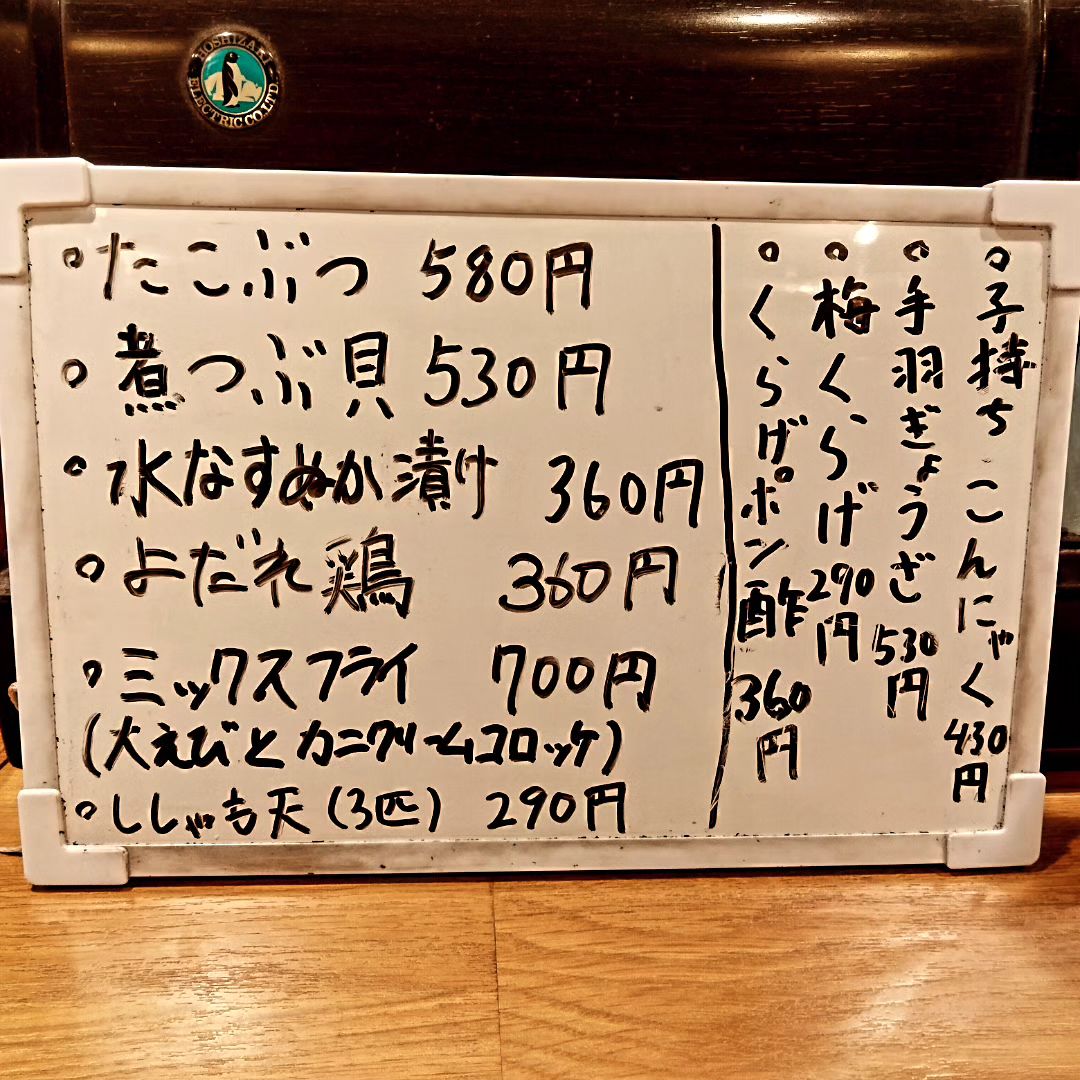 HOSHIZAKI
ELECTRIC CO.LTD.
。たこぶつ 580円
。煮つぶ貝 530円
。水なすぬか漬け 360円
。よだれ鶏 360円
。ミックスフライ 700円
(大えびとカニクリームコロッケ)
。ししゃも天(3匹) 290円
。子持ちこんにゃく 430円
。手羽ぎょうざ 530円
。梅くらげ 290円
。くらげポン酢 360円